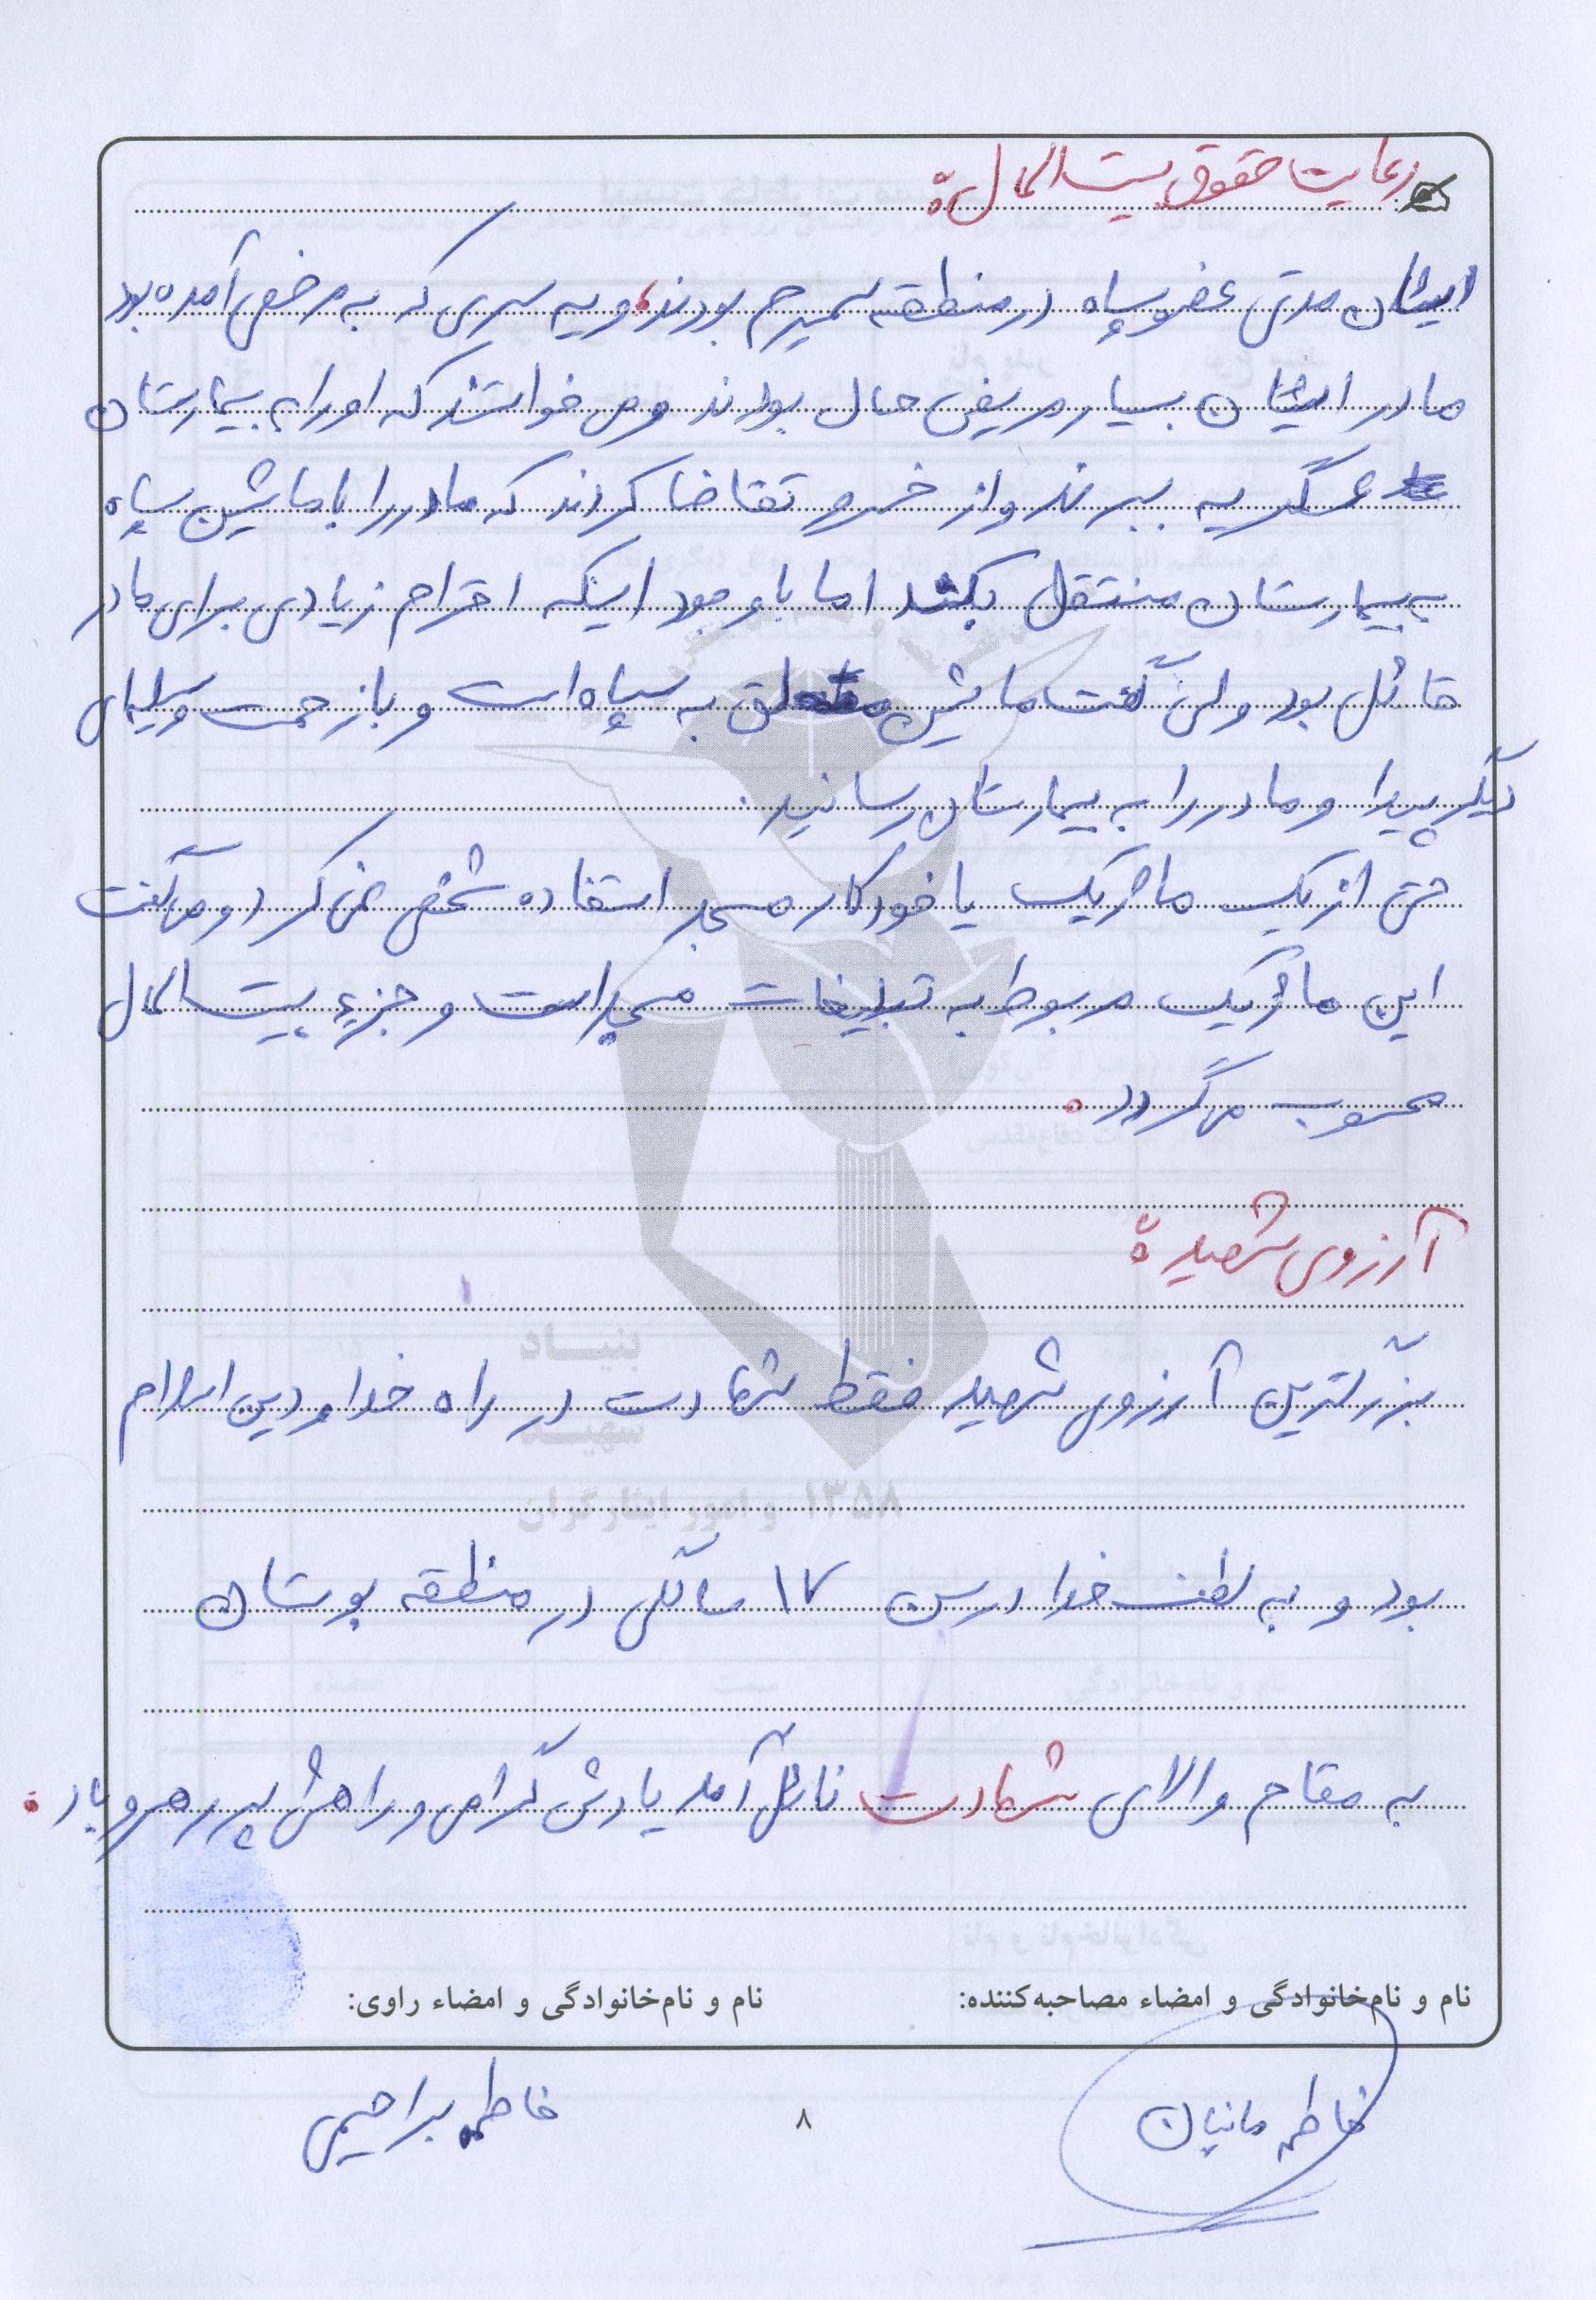 رعایت حقوق بیت المال:
ایشان مدتی عضو سپاه در منطقه سمیرم بودند، و یه سری که به مرخصی آمده بود
مادر ایشان بسیار مریض حال بودند و می خواستند که او را به بیمارستان
عسگریه ببرند و از خسرو تقاضا کردند که مادر را با ماشین سپاه
به بیمارستان منتقل بکند اما با وجود اینکه احترام زیادی برای مادر
قائل بود ولی گفت ماشین متعلق به سپاه است و با زحمت وسیله‌ای
دیگر پیدا و مادر را به بیمارستان رسانید.
حتی از یک ماژیک یا خودکار مسجد استفاده شخصی نمی کرد و می گفت
این ماژیک مربوط به تبلیغات مسجد است و جزء بیت المال
محسوب می گردد.
آرزوی شهید:
بزرگترین آرزوی شهید فقط شهادت در راه خدا و دین اسلام
بود و به لطف خدا در سن ۱۷ سالگی در منطقه بوستان
به مقام والای شهادت نائل آمد یادش گرامی و راهش پر رهرو باد.
بنیاد
شهید
و امور ایثارگران ۱۳۵۸
نام و نام‌خانوادگی و امضاء مصاحبه‌کننده: نام و نام‌خانوادگی و امضاء راوی:
فاطمه مانیان فاطمه براحیمی
۸